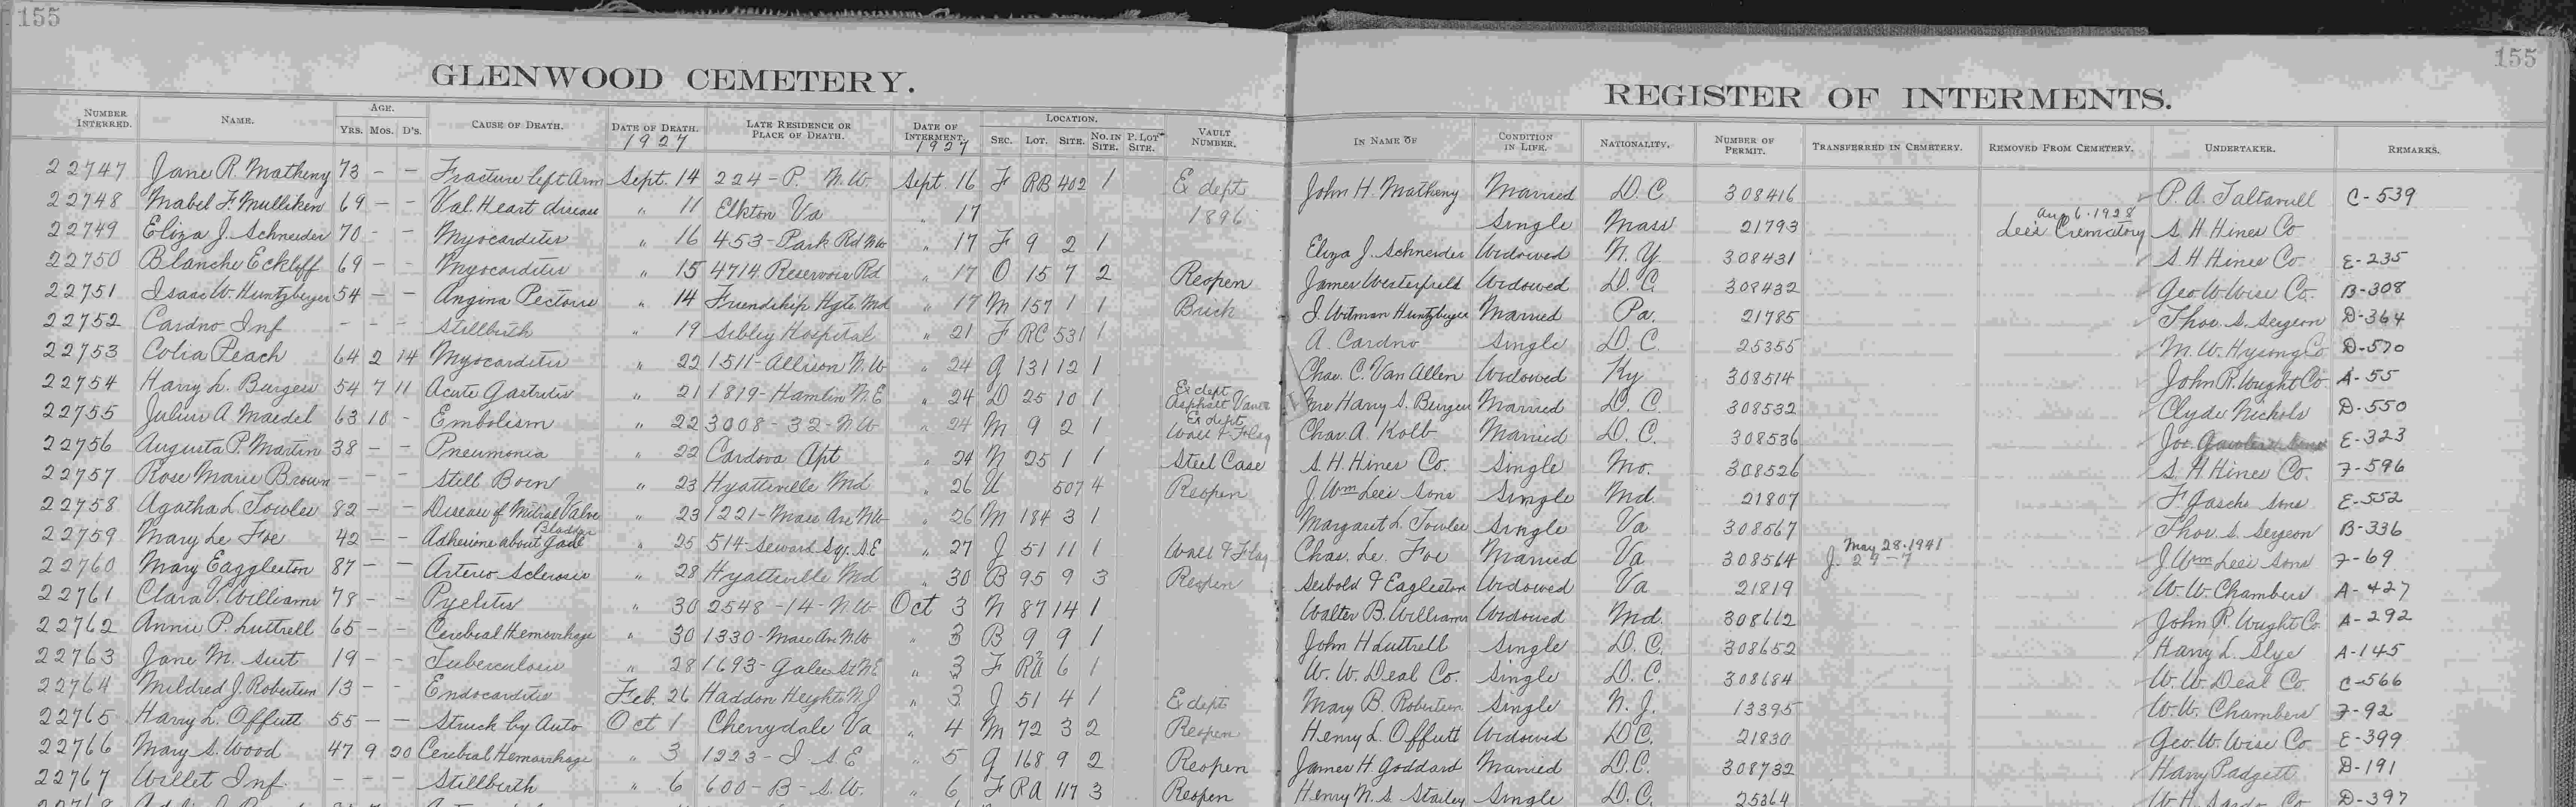 155
155
GLENWOOD CEMETERY.
REGISTER OF INTERMENTS.
NUMBER INTERRED. NAME. AGE. YRS. MOS. D'S. CAUSE OF DEATH. DATE OF DEATH. 1927 LATE RESIDENCE OR PLACE OF DEATH. DATE OF INTERMENT. 1927 LOCATION. SEC. LOT. SITE. NO. IN SITE. P. LOT SITE. VAULT NUMBER. IN NAME OF CONDITION IN LIFE. NATIONALITY. NUMBER OF PERMIT. TRANSFERRED IN CEMETERY. REMOVED FROM CEMETERY. UNDERTAKER. REMARKS.
22747 Jane R. Matheny 73 - - Fracture left Arm Sept. 14 224 - P. N.W. Sept. 16 F RB 402 1 Ex dept John H. Matheny Married D.C. 308416 P. A. Taltavull C-539
22748 Mabel F. Mulliken 69 - - Val. Heart disease " 11 Elkton Va " 17 1896 Single Mass 21793 Aug 6. 1928 Lee's Crematory S. H. Hines Co
22749 Eliza J. Schneider 70 - - Myocarditis " 16 453 - Park Rd NW " 17 F 9 2 1 Eliza J. Schneider Widowed N.Y. 308431 S. H. Hines Co E-235
22750 Blanche Eckloff 69 - - Myocarditis " 15 4714 Reservoir Rd " 17 O 15 7 2 Reopen James Westerfield Widowed D.C. 308432 Geo W. Wise Co. B-308
22751 Isaac W. Huntzberger 54 - - Angina Pectoris " 14 Friendship Hgts. Md " 17 M 157 1 1 Brick J. Witman Huntzberger Married Pa. 21785 Thos. S. Sergeon D-364
22752 Cardno Inf - - - Stillbirth " 19 Sibley Hospital " 21 F RC 531 1 A. Cardno Single D.C. 25355 M. W. Hysong Co D-570
22753 Colia Peach 64 2 14 Myocarditis " 22 1511 - Allison N.W. " 24 G 131 12 1 Chas. C. Van Allen Widowed Ky 308514 John R. Wright Co A-55
22754 Harry L. Burgess 54 7 11 Acute Gastritis " 21 1819 - Hamlin N.E " 24 D 25 10 1 Ex dept Asphalt Mrs Harry S. Burgess Married D.C. 308532 Clyde Nichols D-550
22755 Julius A. Maedel 63 10 - Embolism " 22 3008 - 32 - N.W " 24 M 9 2 1 Ex dept Wall & Flag Chas. A. Kolb Married D.C. 308536 Jos. E-323
22756 Augusta P. Martin 38 - - Pneumonia " 22 Cardova Apt " 24 N 25 1 1 Steel Case S. H. Hines Co. Single Mo. 308526 S. H. Hines Co. F-596
22757 Rose Marie Brown - - Still Born " 23 Hyattsville Md " 26 U 507 4 Reopen J. Wm Lee's Sons Single Md. 21807 F. Gasch's Sons E-552
22758 Agatha L. Towles 82 - - Disease of Mitral Valve " 23 1221 - Mass Ave NW " 26 M 184 3 1 Margaret L. Towles Single Va 308567 Thos. S. Sergeon B-336
22759 Mary Le Foe 42 - - Adhesions about Gall Bladder " 25 514 - Seward Sq. S.E " 27 J 51 11 1 Wall & Flag Chas. Le. Foe Married Va 308564 May 28. 1941 J. 27-7 J. Wm Lee's Sons F-69
22760 Mary Eaggleston 87 - - Arterio Sclerosis " 28 Hyattsville Md " 30 B 95 9 3 Reopen Seibold & Eagleston Widowed Va 21819 W. W. Chambers A-427
22761 Clara V. Williams 78 - - Pyelitis " 30 2548 - 14 - N.W Oct 3 N 87 14 1 Walter B. Williams Widowed Md. 308662 John R. Wright Co A-292
22762 Annie P. Luttrell 65 - - Cerebral Hemorrhage " 30 1330 - Mass Av. NW " 3 B 9 9 1 John H Luttrell Single D.C. 308652 Harry L. Slye A-145
22763 Jane M. Suit 19 - - Tuberculosis " 28 1693 - Gales St NE " 3 F RA 6 1 W. W. Deal Co. Single D.C. 308684 W. W. Deal Co. C-566
22764 Mildred J. Robertson 13 - - Endocarditis Feb. 26 Haddon Heights N.J " 3 J 51 4 1 Ex dept Mary B. Robertson Single N.J. 13395 W. W. Chambers F-92
22765 Harry L. Offutt 55 - - Struck by Auto Oct 1 Cherrydale Va " 4 M 72 3 2 Reopen Henry L. Offutt Widowed D.C. 21830 Geo. W. Wise Co E-399
22766 Mary S. Wood 47 9 20 Cerebral Hemorrhage " 3 1223 - I S E " 5 G 168 9 2 Reopen James H. Goddard Married D.C. 308732 Harry Padgett D-191
22767 Willet Inf - - - Stillbirth " 6 600 - B - S.W. " 6 F RA 117 3 Reopen Henry N. S. Stailey Single D.C. 25364 D-397